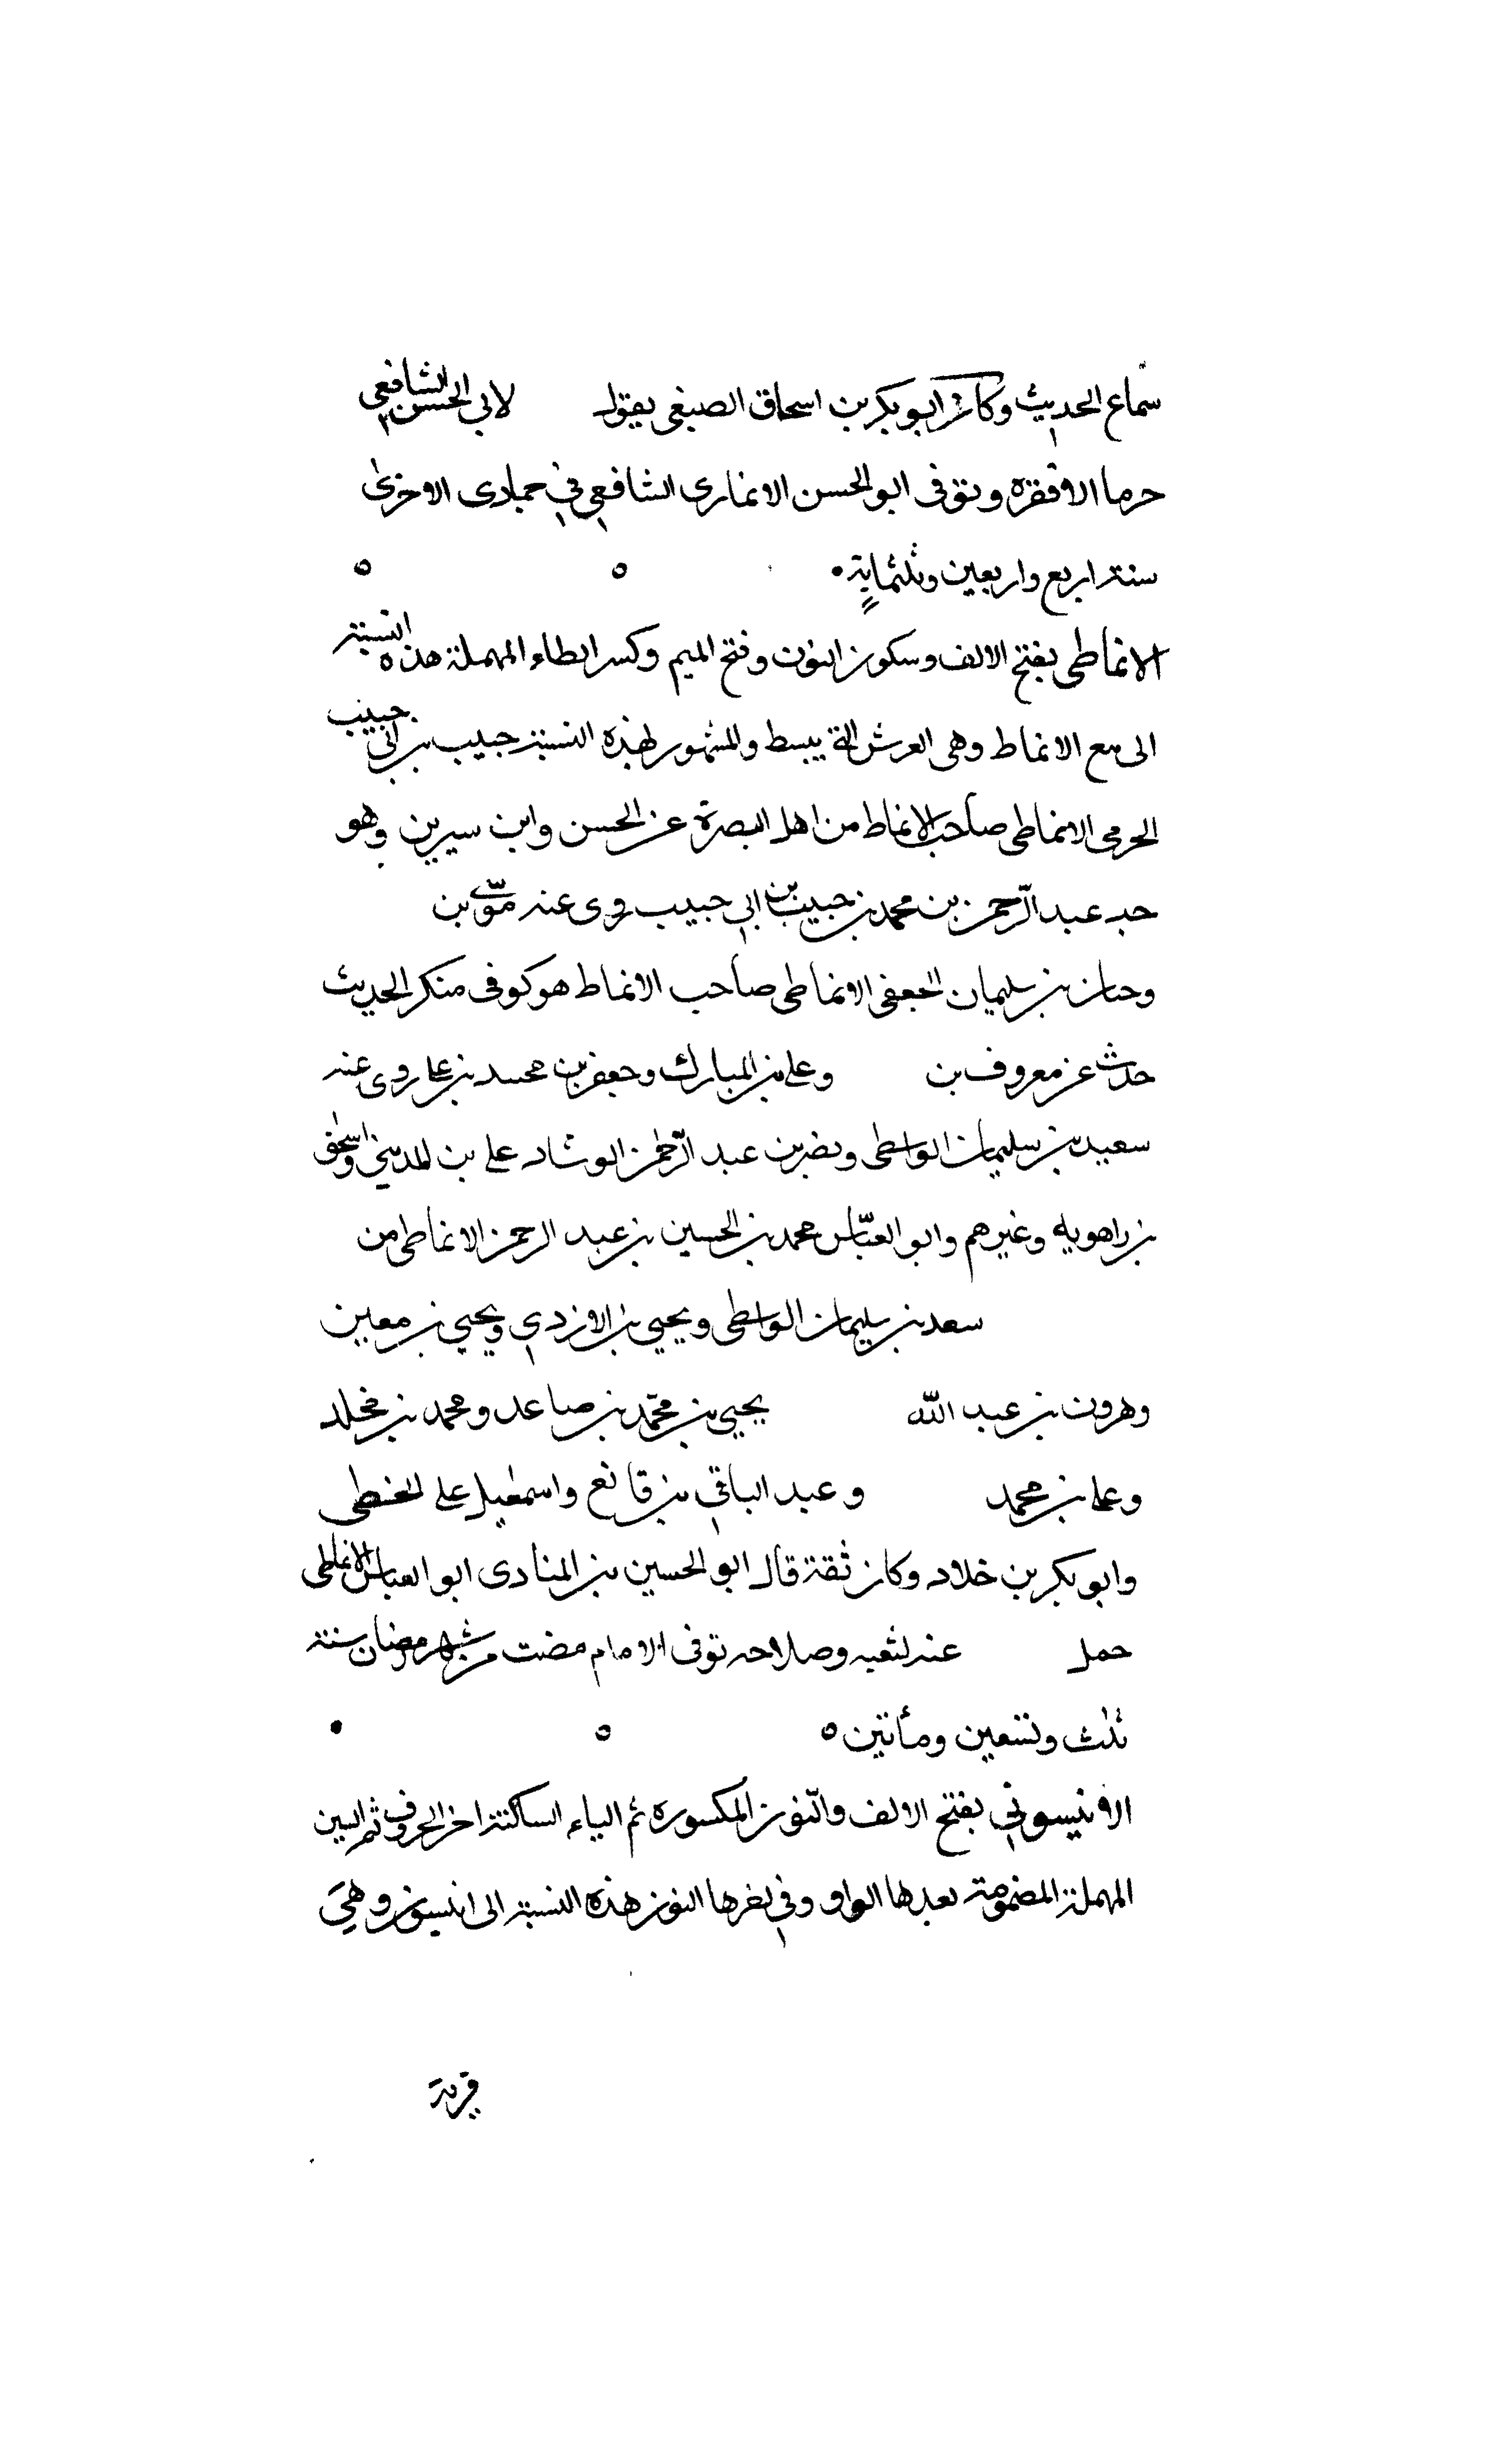 سماع الحديث وكان ابو بكر بن اسحاق الصبغي يقول لابي الحسن الشافعي
حرما الافقره وتوفى ابو الحسن الانماري الشافعي في جمادى الاخرى
سنة اربع واربعين وثلثماية
الانماطي بفتح الالف وسكون النون وفتح الميم وكسر الطاء المهملة هذه النسبة
الى بيع الانماط وهى الفرش التي يبسط والمشهور بهذه النسبة حبيب بن ابي حبيب
الجرمي الانماطي صاحب الانماط من اهل البصرة عن الحسن وابن سيرين وهو
جد عبد الرحمن بن محمد بن حبيب بن ابي حبيب روى عنه موسى بن
وحنان بن سليمان الجعفي الانماطي صاحب الانماط هو كوفى منكر الحديث
حدث عن معروف بن وعلى بن المبارك وجعفر بن محمد بن على روى عنه
سعيد بن سليمان الواسطي ونصر بن عبد الرحمن الوشاد على بن المديني واسحق
بن راهويه وغيرهم وابو العباس محمد بن الحسين بن عبد الرحمن الانماطي من
سعد بن سليمان الواسطي ويحيى بن الازدي ويحيى بن معين
وهرون بن عبد الله يحيى بن محمد بن صاعد ومحمد بن مخلد
وعلى بن محمد و عبد الباقي بن قانع واسمعيل على الخطي
وابو بكر بن خلاد وكان ثقة قال ابو الحسين بن المنادى ابو العباس الانماطي
حمل عنه وصلاحه توفى الامام مضت من شهر رمضان سنة
ثلث وتسعين ومأتين
الانيسوني بفتح الالف والنون المكسوره ثم الياء الساكنة اخر الحروف ثم السين
المهملة المضمومة بعدها الواو وفي اخرها النون هذه النسبة الى انيسون وهي
قرية